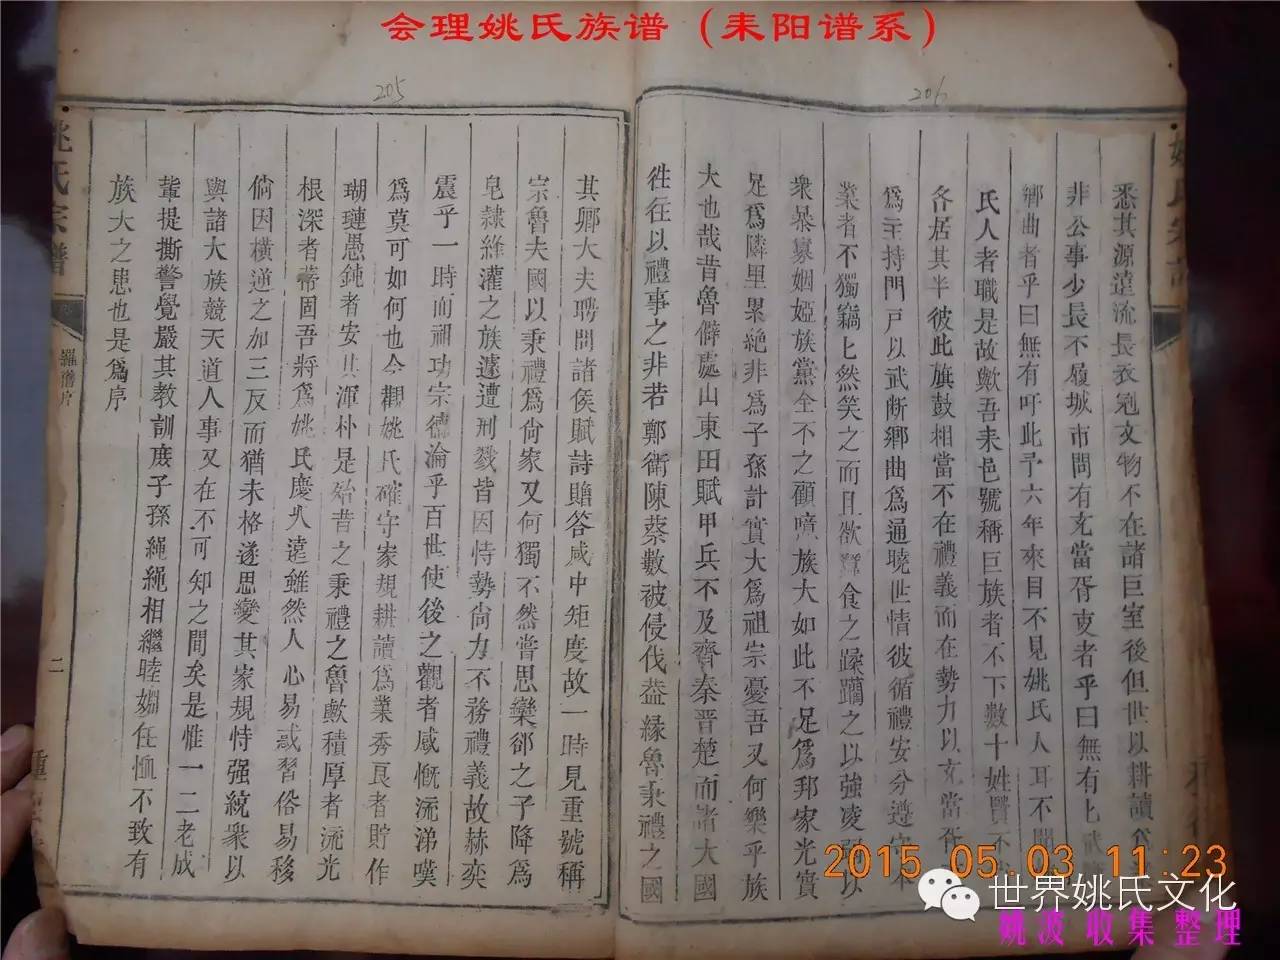 会理姚氏族谱（耒阳谱系）
206
悉其源遠流長衣冠文物不在諸巨室後但世以耕讀
非公事少長不履城市問有充當胥吏者乎曰無有也武
鄉曲者乎曰無有吁此予六年來目不見姚氏人耳不聞
氏人者職是故歟吾耒邑號稱巨族者不下數十姓賢不
各居其半彼此旗鼓相當不在禮義而在勢力以充當胥
爲主持門戶以武断鄉曲爲通曉世情彼循禮安分遵守本
業者不獨竊匕然笑之而且欲蠶食之蹂躪之以強凌弱以
衆暴寡姻婭族黨全不之顧噫族大如此不足爲邦家光實
足爲隣里累絶非爲子孫計實大爲祖宗憂吾又何樂乎族
大也哉昔魯僻處山東田賦甲兵不及齊秦晉楚而諸大國
徃往以禮事之非若鄭衛陳蔡數被侵伐葢縁魯秉禮之國
205
其卿大夫聘問諸侯賦詩贈答咸中矩度故一時見重號稱
宗魯夫國以秉禮爲尙家又何獨不然嘗思欒郤之子降爲
皂隸絳灌之族遽遭刑戮皆因恃勢尙力不務禮義故赫奕
震乎一時而祖功宗德淪乎百世使後之觀者感慨流涕嘆
爲莫可如何也今觀姚氏確守家規耕讀爲業秀良者貯作
瑚璉愚鈍者安其渾朴是殆昔之秉禮之魯歟積厚者流光
根深者蒂固吾將爲姚氏慶久遠雖然人心易惑習俗易移
倘因橫逆之加三反而猶未格遂思變其家規恃强統衆以
與諸大族競天道人事又在不可知之間矣是惟一二老成
輩提撕警覺嚴其教訓庻子孫繩繩相繼睦婣任恤不致有
族大之患也是爲序
姚氏宗譜
序
二
2015.05.03 11:23
世界姚氏文化
姚波 收集整理